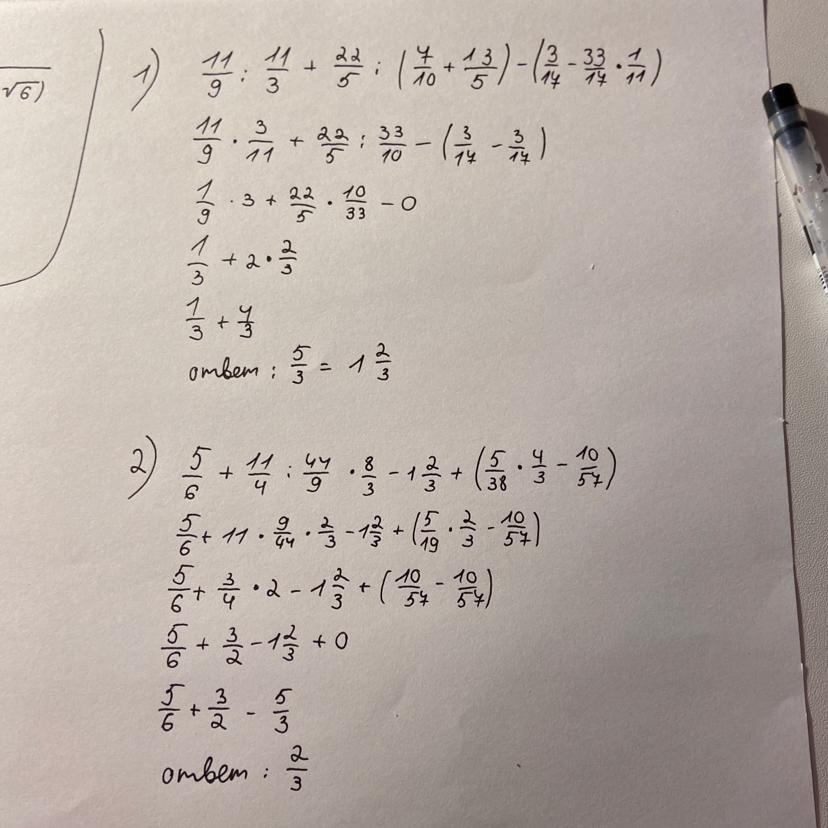 √6)
1) 11/9 : 11/3 + 22/5 : (7/10 + 13/5) - (3/17 - 33/17 • 1/11)
11/9 • 3/11 + 22/5 : 33/10 - (3/17 - 3/17)
1/9 • 3 + 22/5 • 10/33 - 0
1/3 + 2 • 2/3
1/3 + 4/3
ответ : 5/3 = 1 2/3
2) 5/6 + 11/4 : 44/9 • 8/3 - 1 2/3 + (5/38 • 4/3 - 10/57)
5/6 + 11 • 9/44 • 2/3 - 1 2/3 + (5/19 • 2/3 - 10/57)
5/6 + 3/4 • 2 - 1 2/3 + (10/57 - 10/57)
5/6 + 3/2 - 1 2/3 + 0
5/6 + 3/2 - 5/3
ответ : 2/3